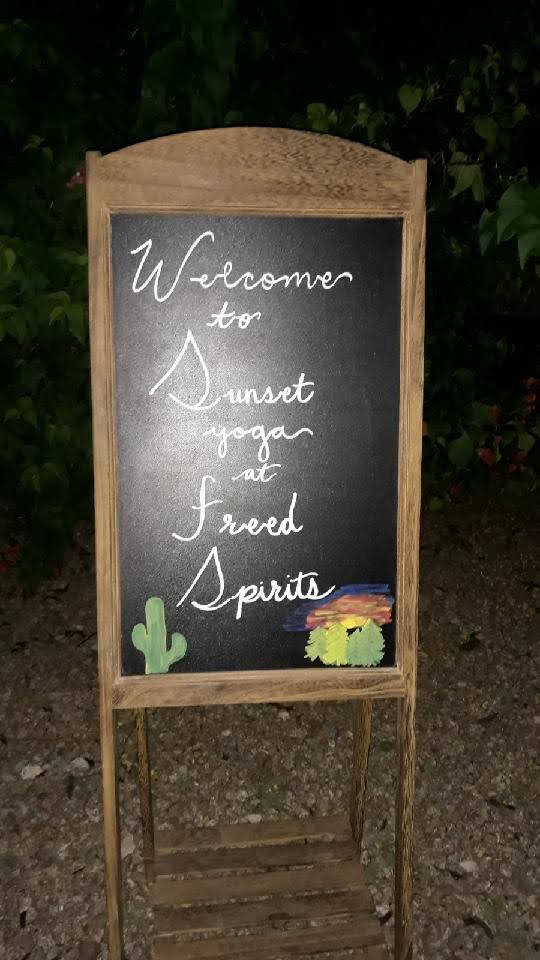 Welcome
to
Sunset
yoga
at
Freed
Spirits